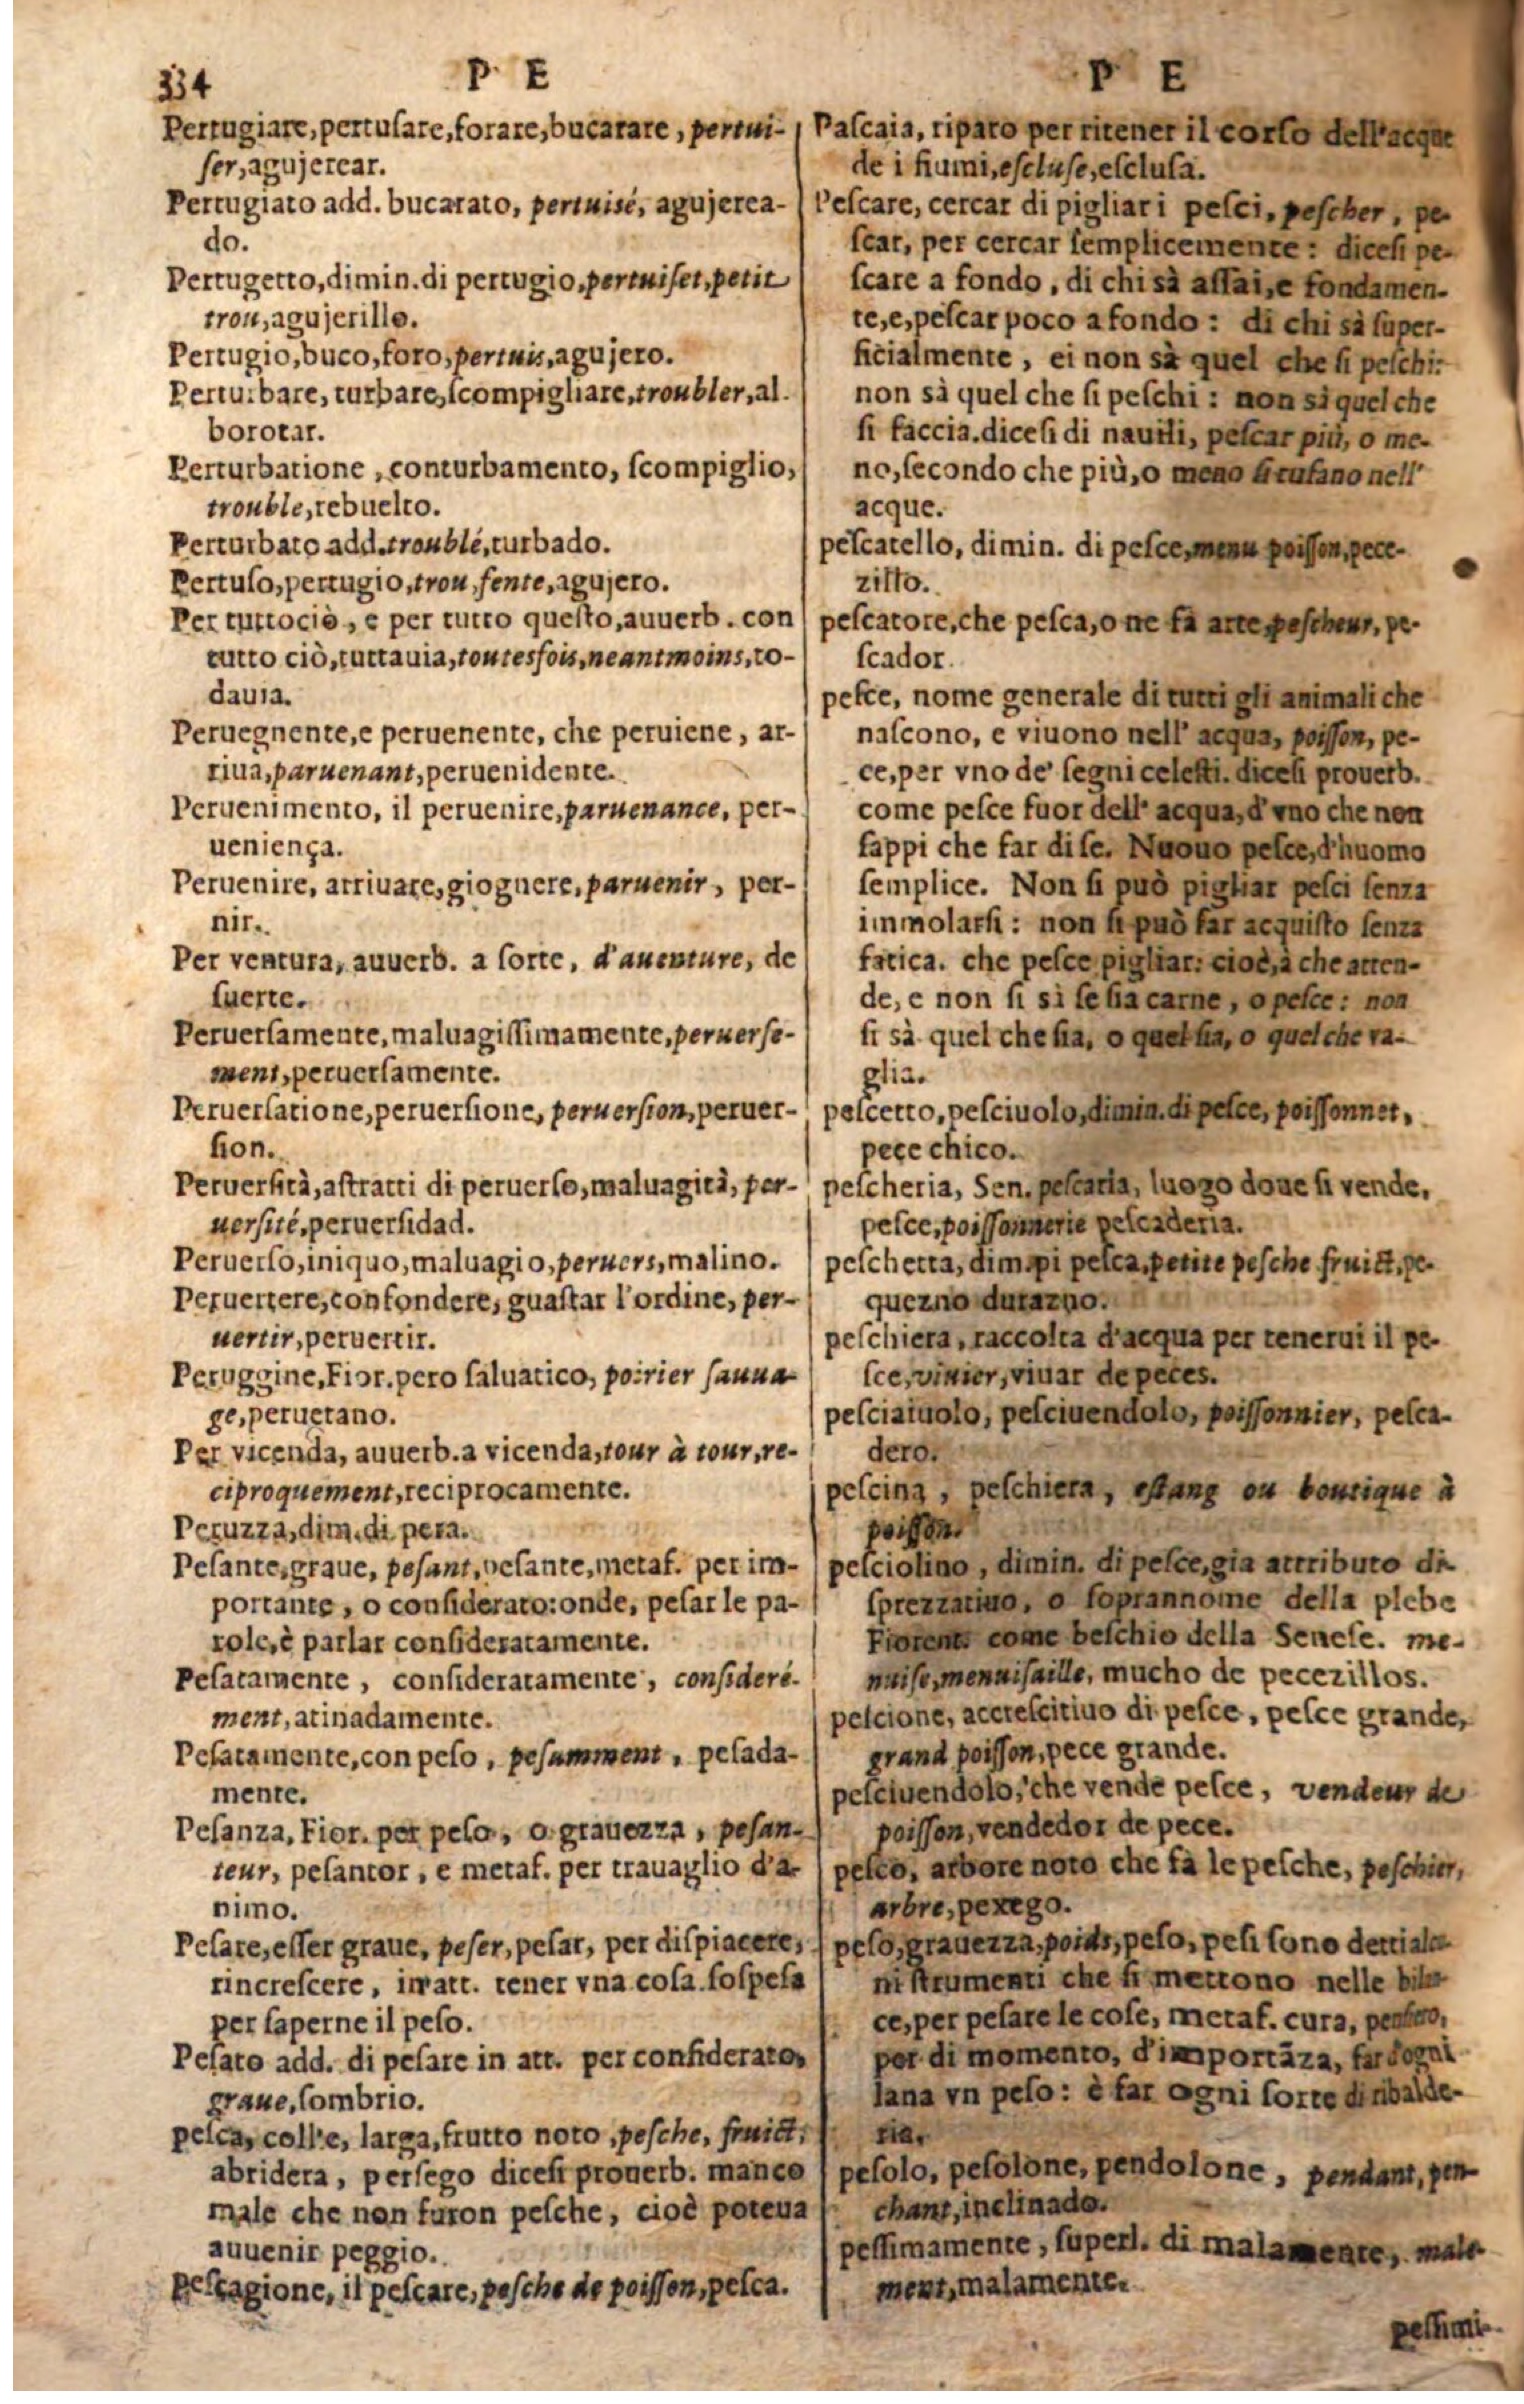 334
P E
Pertugiare, pertuſare, forare, bucarare, pertui-
ſer, agujerear.
Pertugiato add. bucarato, pertuisé, agujerea-
do.
Pertugetto, dimin. di pertugio, pertuiſet, petit
trou, agujerillo.
Pertugio, buco, foro, pertuis, agujero.
Perturbare, turbare, ſcompigliare, troubler, al-
borotar.
Perturbatione, conturbamento, ſcompiglio,
trouble, rebuelto.
Perturbato add. troublé, turbado.
Pertuſo, pertugio, trou, fente, agujero.
Per tuttociò, e per tutto queſto, auuerb. con
tutto ciò, tuttauia, toutesfois, neantmoins, to-
dauia.
Peruegnente, e peruenente, che peruiene, ar-
riua, paruenant, peruenidente.
Peruenimento, il peruenire, paruenance, per-
ueniença.
Peruenire, arriuare, giognere, paruenir, per-
nir.
Per ventura, auuerb. a ſorte, d'auenture, de
ſuerte.
Peruerſamente, maluagiſſimamente, peruerſe-
ment, peruerſamente.
Peruerſatione, peruerſione, peruerſion, peruer-
ſion.
Peruerſità, aſtratti di peruerſo, maluagità, per-
uerſité, peruerſidad.
Peruerſo, iniquo, maluagio, peruers, malino.
Peruertere, confondere, guaſtar l'ordine, per-
uertir, peruertir.
Peruggine, Fior. pero ſaluatico, poirier ſauua-
ge, peruetano.
Per vicenda, auuerb. a vicenda, tour à tour, re-
ciproquement, reciprocamente.
Peruzza, dim. di pera.
Peſante, graue, peſant, peſante, metaf. per im-
portante, o conſiderato: onde, peſar le pa-
role, è parlar conſideratamente.
Peſatamente, conſideratamente, conſideré-
ment, atinadamente.
Peſatamente, con peſo, peſamment, peſada-
mente.
Peſanza, Fior. per peſo, o grauezza, peſan-
teur, peſantor, e metaf. per trauaglio d'a-
nimo.
Peſare, eſſer graue, peſer, peſar, per diſpiacere,
rincreſcere, in att. tener vna coſa ſoſpeſa
per ſaperne il peſo.
Peſato add. di peſare in att. per conſiderato,
graue, ſombrio.
peſca, coll'e, larga, frutto noto, peſche, fruict,
abridera, perſego diceſi prouerb. manco
male che non furon peſche, cioè poteua
auuenir peggio.
Peſcagione, il peſcare, peſche de poiſſon, peſca.
P E
Paſcaia, riparo per ritener il corſo dell'acque
de i fiumi, eſcluſe, eſcluſa.
Peſcare, cercar di pigliar i peſci, peſcher, pe-
ſcar, per cercar ſemplicemente: diceſi pe-
ſcare a fondo, di chi sà aſſai, e fondamen-
te, e, peſcar poco a fondo: di chi sà ſuper-
ficialmente, ei non sà quel che ſi peſchi:
non sà quel che ſi peſchi: non sà quel che
ſi faccia. diceſi di nauili, peſcar più, o me-
no, ſecondo che più, o meno ſi tufano nell'
acque.
peſcatello, dimin. di peſce, menu poiſſon, pece-
zillo.
peſcatore, che peſca, o ne fà arte, peſcheur, pe-
ſcador.
peſce, nome generale di tutti gli animali che
naſcono, e viuono nell' acqua, poiſſon, pe-
ce, per vno de' ſegni celeſti. diceſi prouerb.
come peſce fuor dell' acqua, d'vno che non
ſappi che far di ſe. Nuouo peſce, d'huomo
ſemplice. Non ſi può pigliar peſci ſenza
immolarſi: non ſi può far acquiſto ſenza
fatica. che peſce pigliar: cioè, à che atten-
de, e non ſi sì ſe ſia carne, o peſce: non
ſi sà quel che ſia, o quel ſia, o quel che va-
glia.
peſcetto, peſciuolo, dimin. di peſce, poiſſonnet,
peçe chico.
peſcheria, Sen. peſcaria, luogo doue ſi vende,
peſce, poiſſonnerie peſcaderia.
peſchetta, dim. pi peſca, petite peſche fruict, pe-
quezno durazno.
peſchiera, raccolta d'acqua per tenerui il pe-
ſce, viuier, viuar de peces.
peſciaiuolo, peſciuendolo, poiſſonnier, peſca-
dero.
peſcina, peſchiera, eſtang ou boutique à
poiſſon.
peſciolino, dimin. di peſce, gia attributo di-
ſprezzatiuo, o ſoprannome della plebe
Fiorent. come beſchio della Seneſe. me-
nuiſe, menuiſaille, mucho de pecezillos.
peſcione, accreſcitiuo di peſce, peſce grande,
grand poiſſon, pece grande.
peſciuendolo, che vende peſce, vendeur de
poiſſon, vendedor de pece.
peſco, arbore noto che fà le peſche, peſchier,
arbre, pexego.
peſo, grauezza, poids, peſo, peſi ſono detti alcu-
ni ſtrumenti che ſi mettono nelle bilan-
ce, per peſare le coſe, metaf. cura, penſiero,
per di momento, d'importāza, far d'ogni
lana vn peſo: è far ogni ſorte di ribalde-
ria.
peſolo, peſolone, pendolone, pendant, pen-
chant, inclinado.
peſſimamente, ſuperl. di malamente, male-
ment, malamente.
peſſimi-